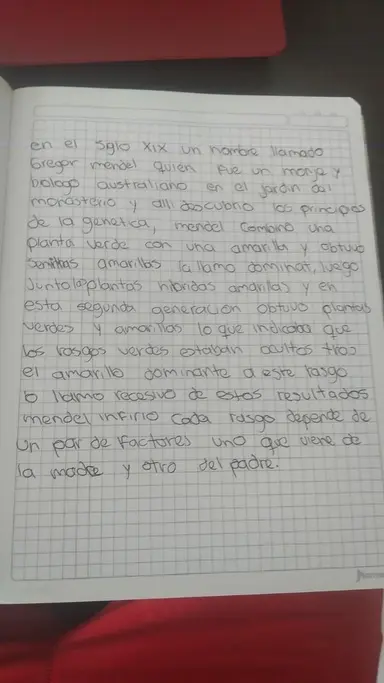 en el siglo XIX un hombre llamado
Gregor mendel quien fue un monje y
bologo australiano en el jardin del
monasterio y alli descubrio los principios
de la genetica, mendel combino una
planta verde con una amarilla y obtuvo
semillas amarillas la llamo dominat, luego
junto las plantas hibridas amarillas y en
esta segunda generacion obtuvo plantas
verdes y amarillas lo que indicaba que
los rasgos verdes estaban ocultos tras
el amarillo dominante a este rasgo
lo llamo recesivo de estos resultados
mendel infirio cada rasgo depende de
un par de factores uno que viene de
la madre y otro del padre.